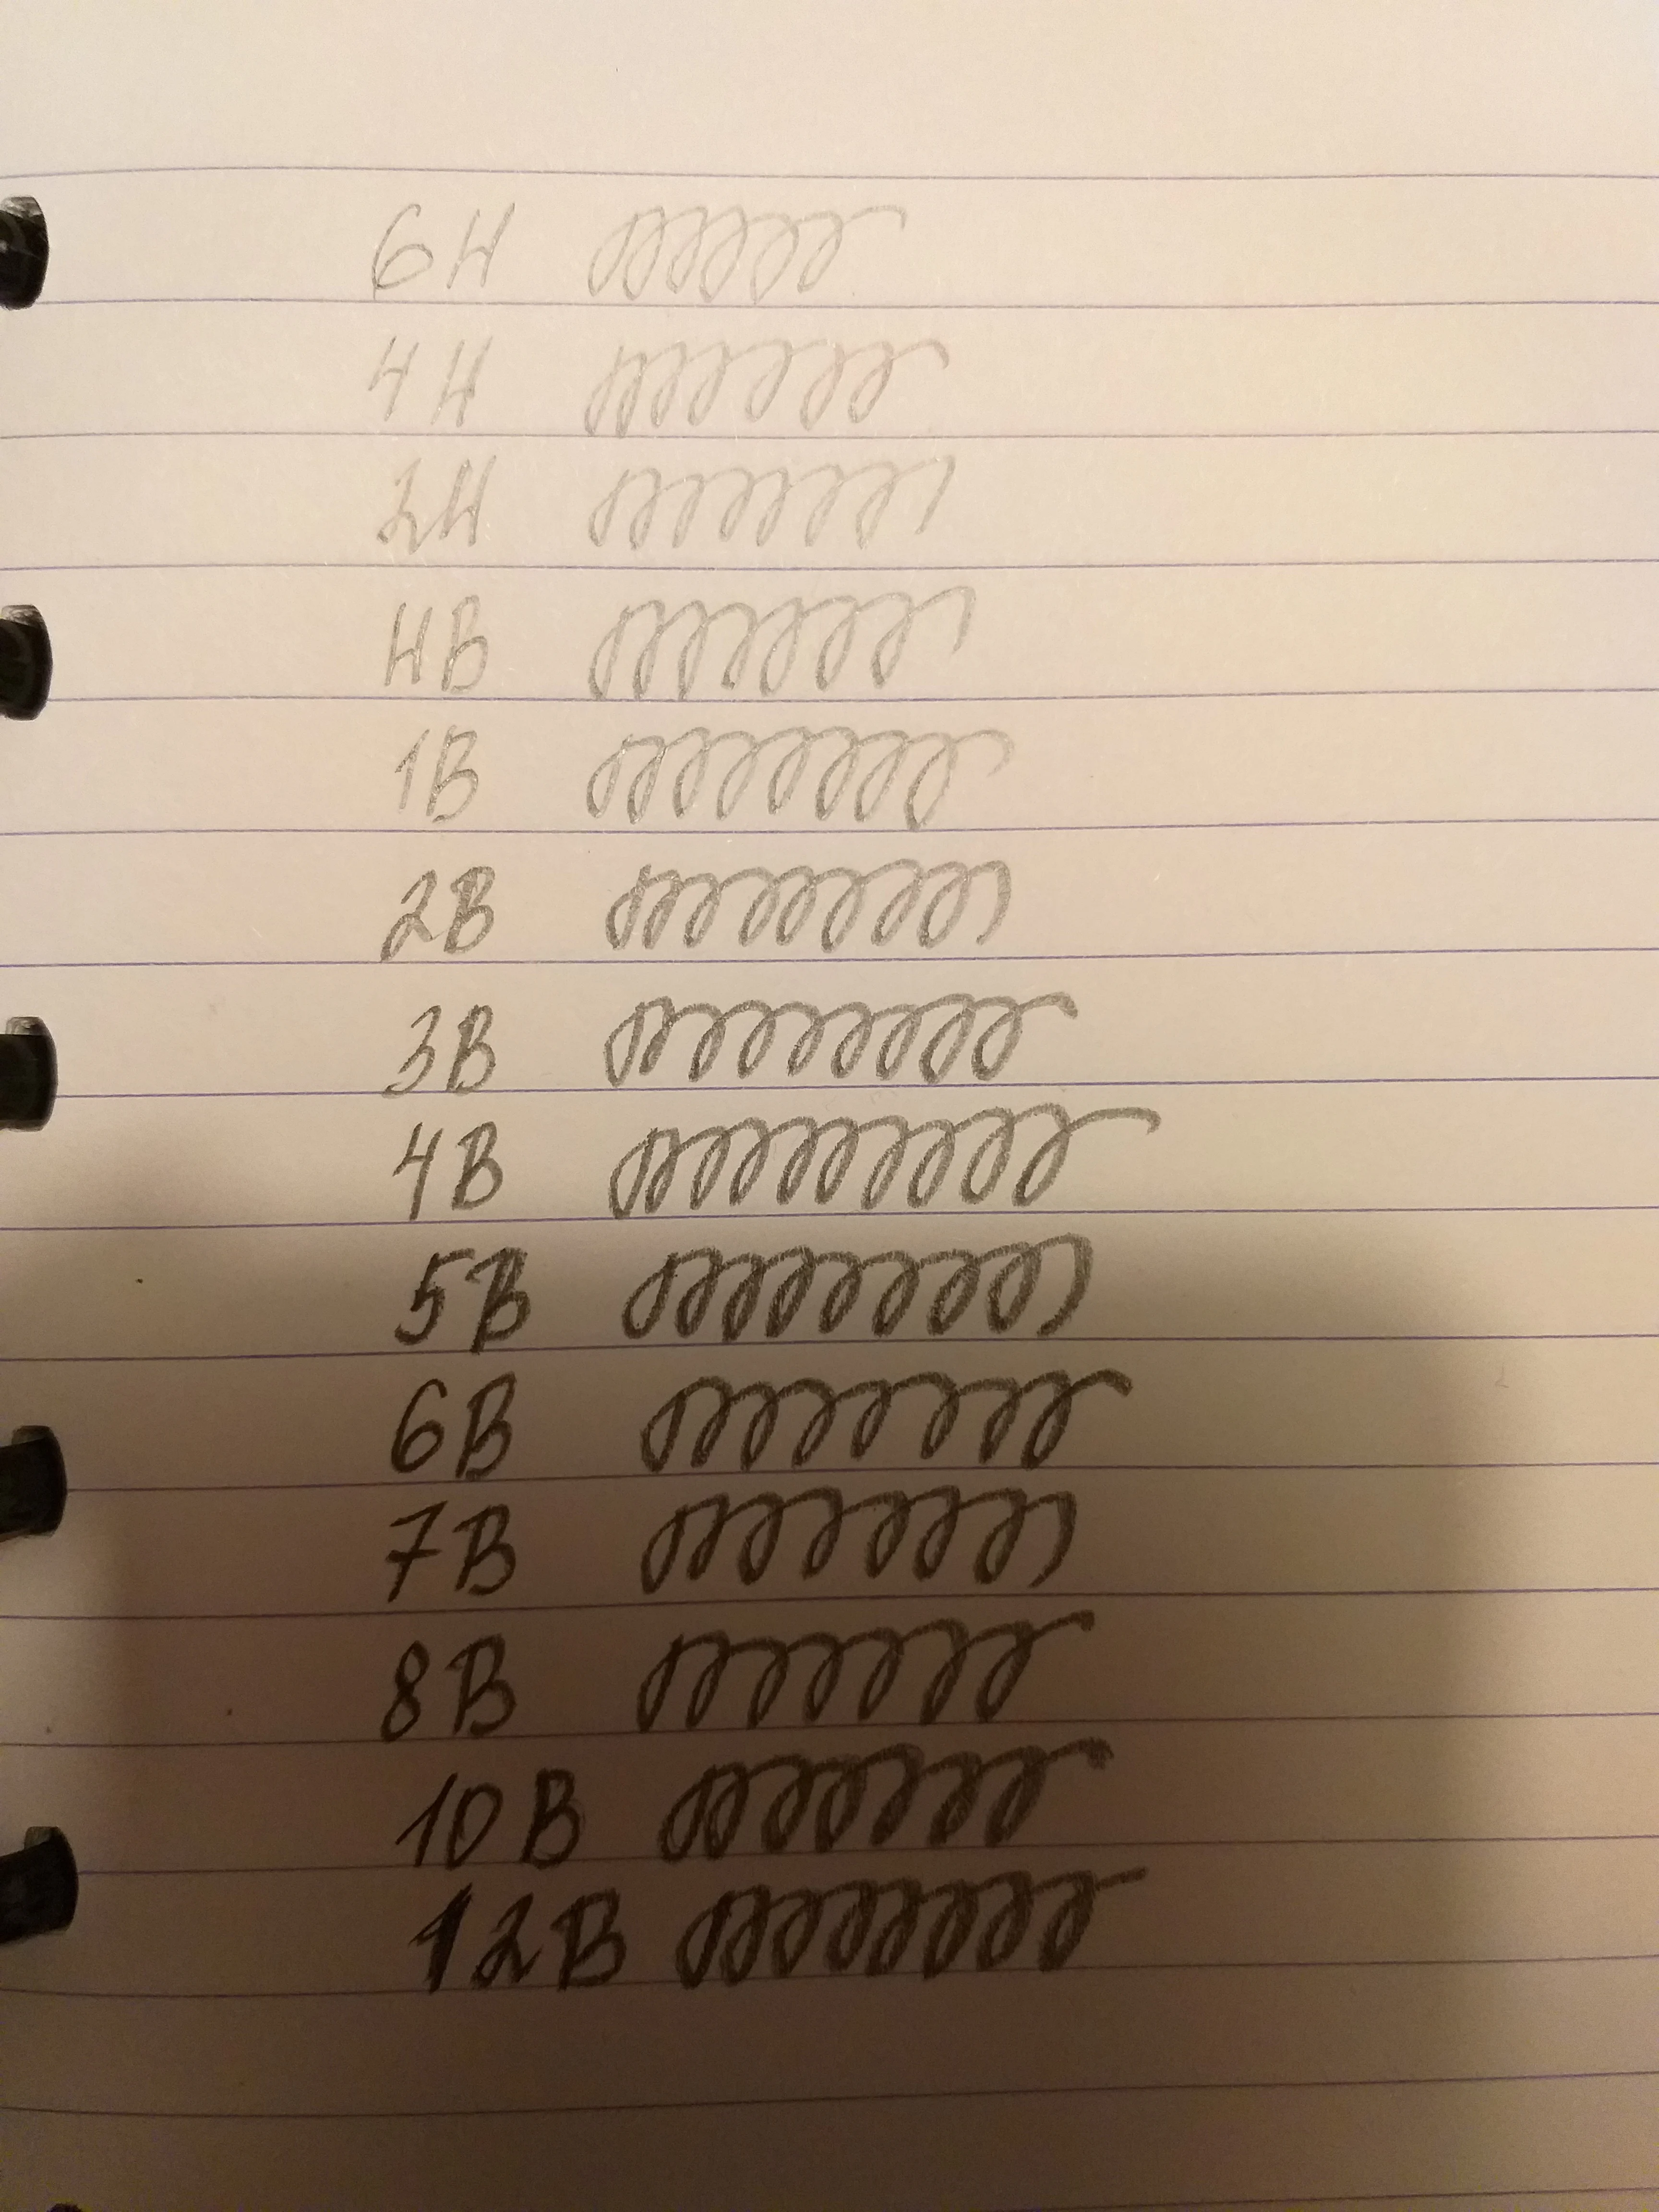 6H
4H
2H
HB
1B
2B
3B
4B
5B
6B
7B
8B
10B
12B